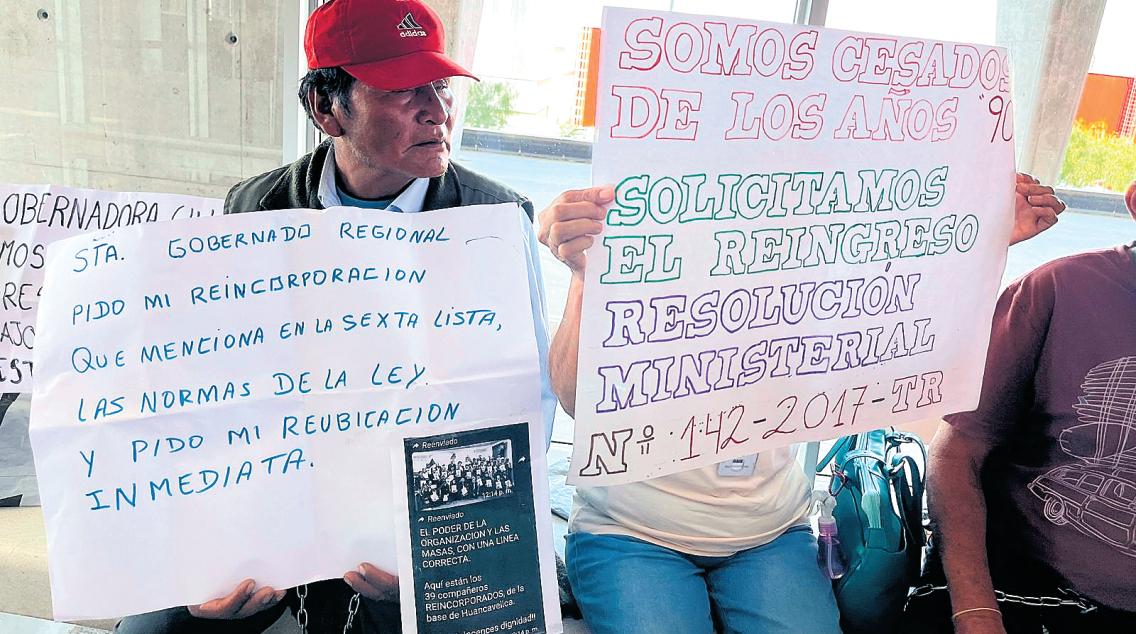 adidas
OBERNADORA
MOS
STA. GOBERNADO REGIONAL
PIDO MI REINCORPORACION
QUE MENCIONA EN LA SEXTA LISTA,
LAS NORMAS DE LA LEY.
Y PIDO MI REUBICACION
INMEDIATA.
Reenviado
12:14 p. m.
Reenviado
EL PODER DE LA
ORGANIZACION Y LAS
MASAS, CON UNA LINEA
CORRECTA.
Aquí están los
39 compañeros
REINCORPORADOS, de la
base de Huancavelica.
dignidad!!
SOMOS CESADOS
DE LOS AÑOS "90
SOLICITAMOS
EL REINGRESO
RESOLUCIÓN
MINISTERIAL
Nº :142-2017-TR